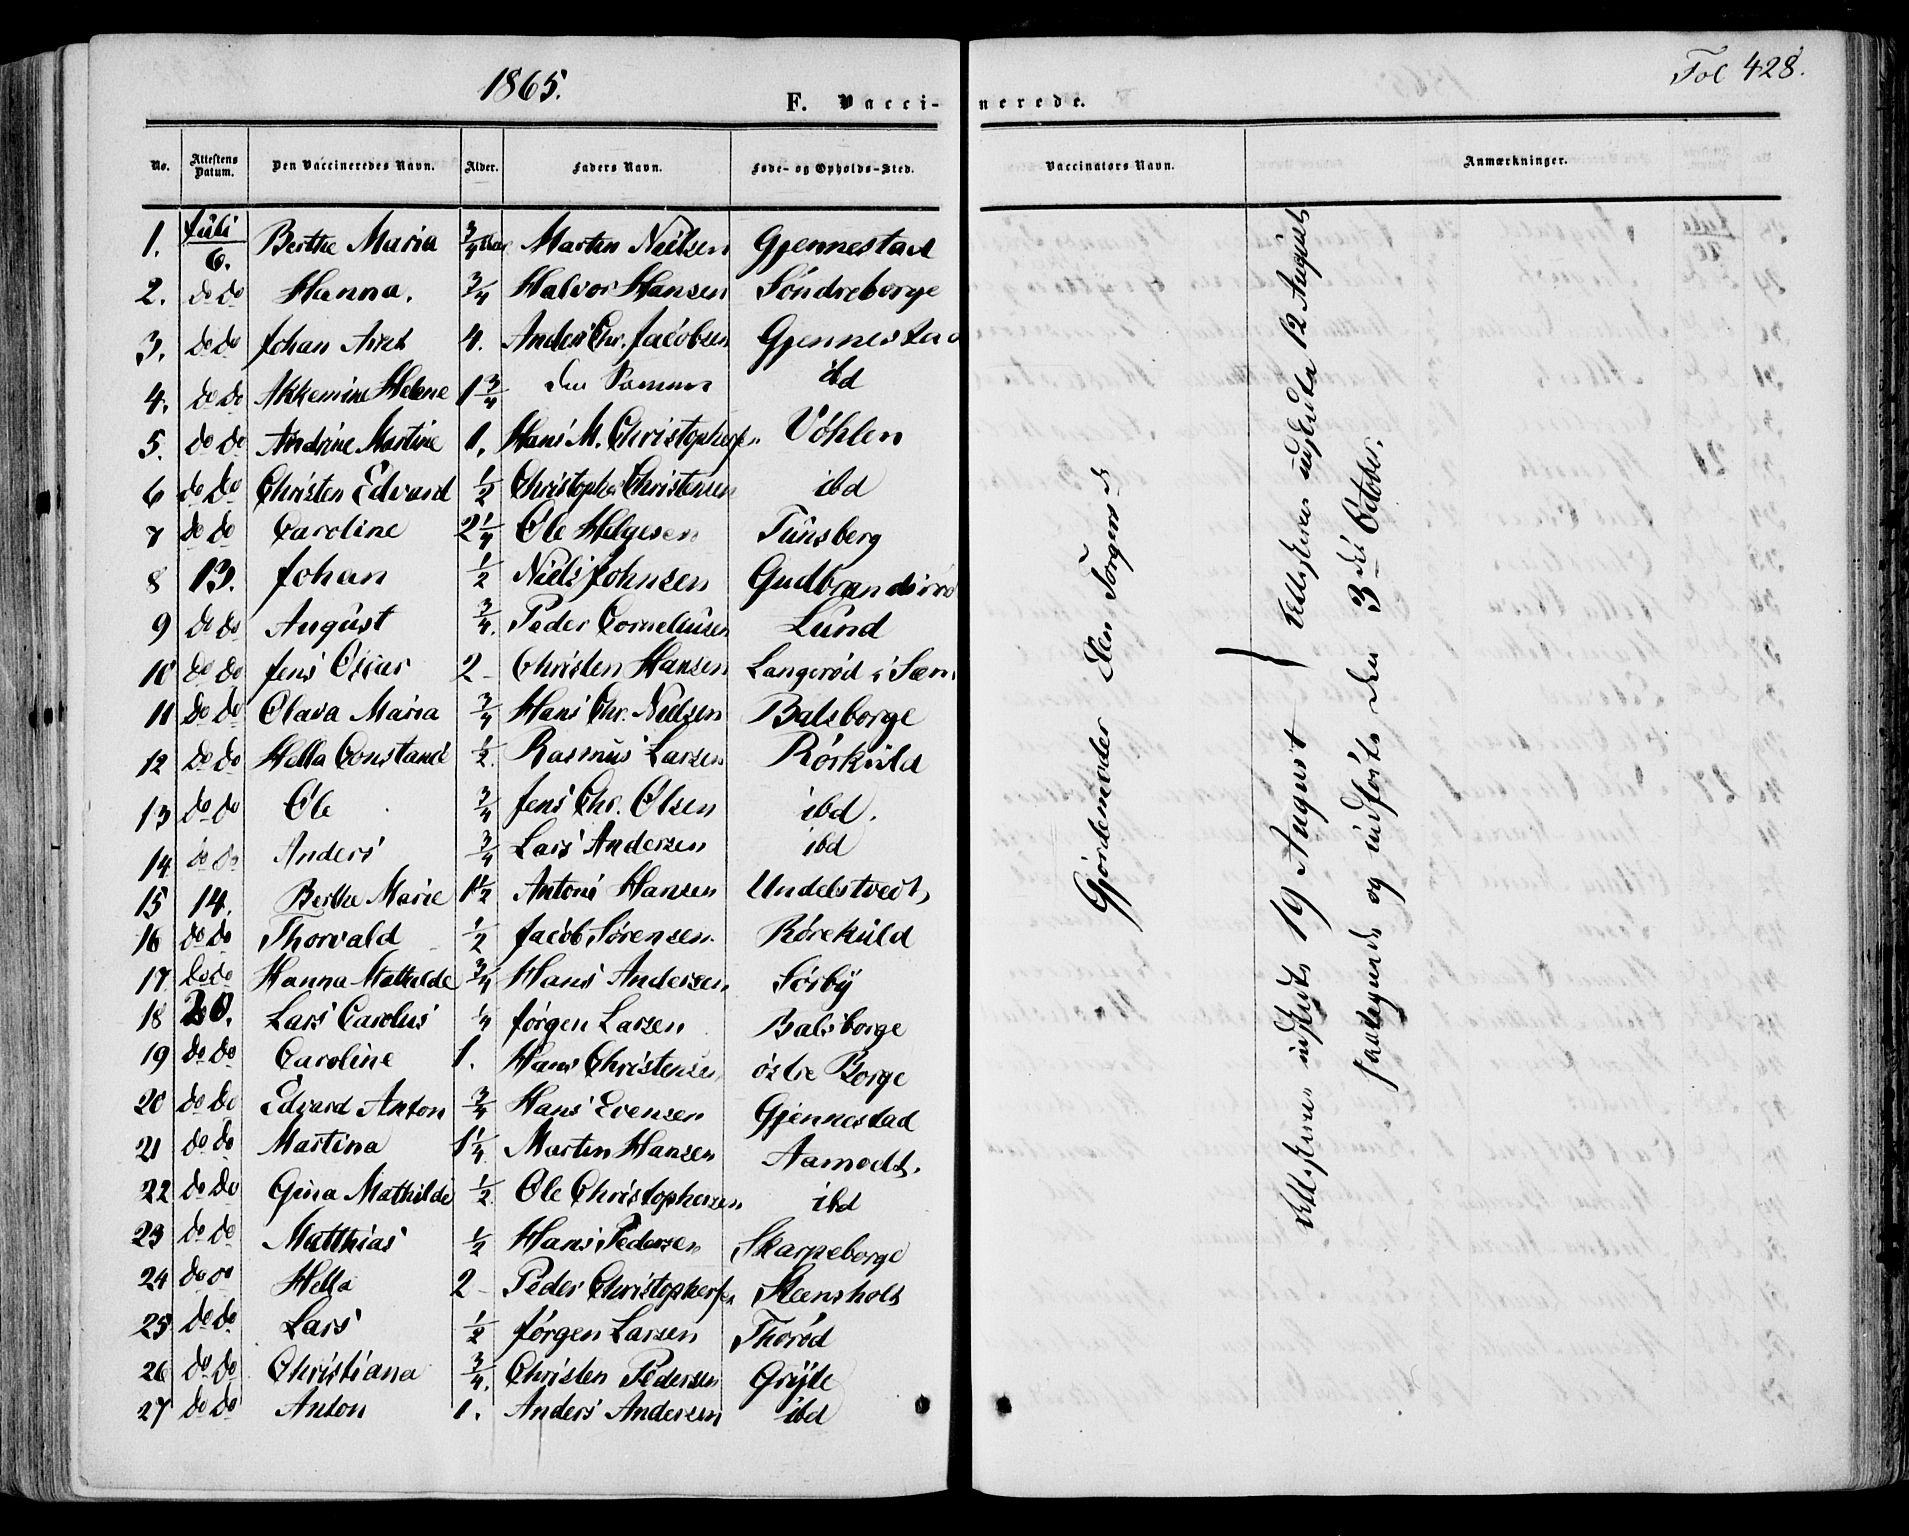 1865.
Fol 428.
F. Vacci- nerede.
No. Attestens Datum. Den Vaccineredes Navn. Alder. Faders Navn. Føde- og Opholds-Sted. Vaccinators Navn. Anmærkninger.
1. Juli 6. Berthe Maria 3/4 Aar Martin Nielsen Gjennestad
2. do do Hanna. 3/4 Halvor Hansen Søndreborge
3. do do Johan Axel 4. Anders Chr. Jacobsen Gjennestad
4. do do Akkemine Helene 1 3/4 den Samme ibd
5. do do Andrine Martine 1. Hans M. Christophersen Vøhlen
6 do do Christen Edvard 1/2 Christopher Christensen ibd
7 do do Caroline 2 1/4 Ole Helgesen Tünsberg
8 13. Johan 1/2 Niels Johnsen Gudbrandsrød
9 do do August 3/4. Peder Corneliusen Lund
10 do do Jens Oscar 2 - Christen Hansen Langerød i Sem
11 do do Olava Maria 3/4 Hans Chr. Nielsen Balsborge
12 do do Hella Constance 1/2. Rasmus Larsen Rørküld
13 do do Ole 3/4 Jens Chr. Olsen ibd.
14 do do Anders 3/4 Lars Andersen ibd
15 14. Berthe Marie 1 1/2 Antoni Hansen Undelstvedt
16 do do Thorvald 1/2 Jacob Sørensen. Røreküld
17 do do Hanna Mathilde 3/4 Hans Andersen Sørby
18 20. Lars Carolius 1/4 Jørgen Larsen Balsborge
19 do do Caroline 1. Hans Christensen østre Borge
20 do do Edvard Anton 3/4 Hans Evensen Gjennestad
21 do do Martina 1 1/4 Martin Hansen Aamodt.
22 do do Gina Mathilde 1/2. Ole Christophersen ibd
23 do do Matthias 1/2 Hans Pedersen Skarpeborge
24 do do Hella 2 - Peder Christophersen Steensholt
25 do do Lars 1/2 Jørgen Larsen Thorød
26 do do Christiana 3/4. Christen Pedersen Gryte
27 do do Anton 1. Anders Andersen ibd
Gjordemoder Elen Jørgensd
Attesterne indskudt 19 August } Attesterne udstedta 12 August
paategnede og indførte den 3die October.